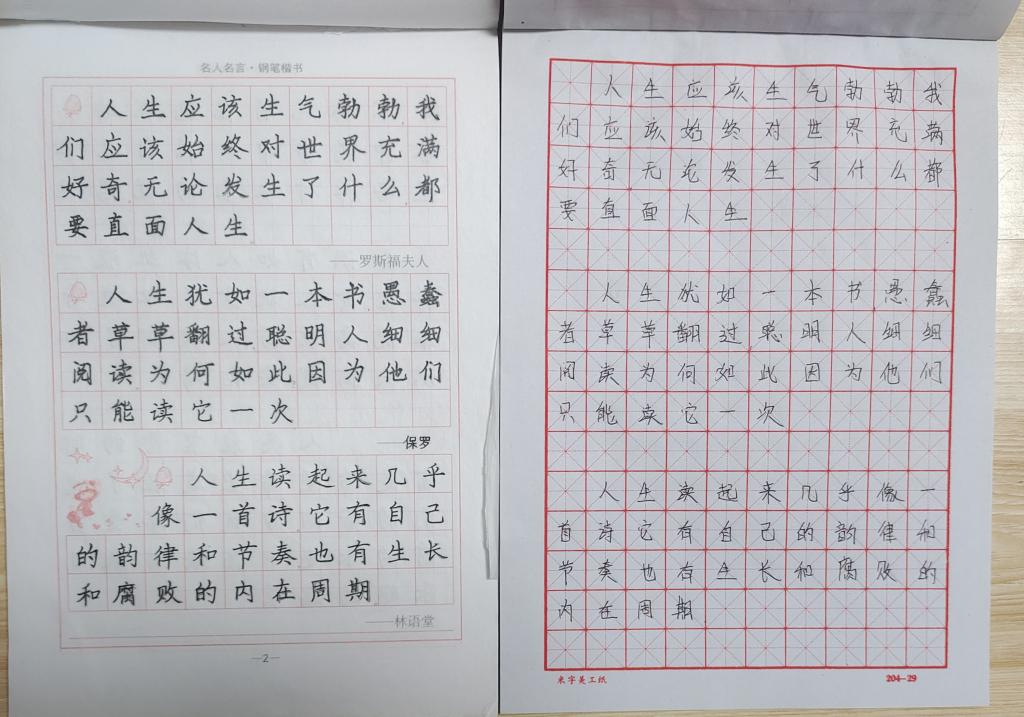 名人名言·钢笔楷书
人生应该生气勃勃我
们应该始终对世界充满
好奇无论发生了什么都
要直面人生
——罗斯福夫人
人生犹如一本书愚蠢
者草草翻过聪明人细细
阅读为何如此因为他们
只能读它一次
——保罗
人生读起来几乎
像一首诗它有自己
的韵律和节奏也有生长
和腐败的内在周期
——林语堂
—2—
人生应该生气勃勃我
们应该始终对世界充满
好奇无论发生了什么都
要直面人生
人生犹如一本书愚蠢
者草草翻过聪明人细细
阅读为何如此因为他们
只能读它一次
人生读起来几乎像一
首诗它有自己的韵律和
节奏也有生长和腐败的
内在周期
米字美工纸
204—29